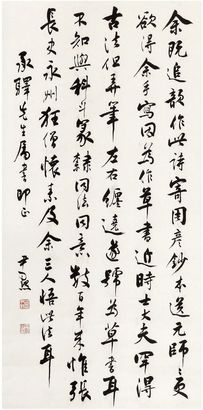 余既追韻作此詩寄周彥鈔本送元師更
欲得余手寫因為作草書近時士大夫罕得
古法但弄筆左右纏遶遂號為草書耳
不知與科斗篆隸同法同意數百年來惟張
長史永州狂僧懷素及余三人悟此法耳
承驛先生屬書即正 尹默